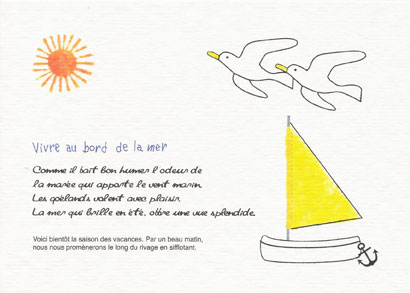 Vivre au bord de la mer
Comme il fait bon humer l'odeur de
la marée qui apporte le vent marin.
Les goélands volent avec plaisir.
La mer qui brille en été, offre une vue splendide.
Voici bientôt la saison des vacances. Par un beau matin,
nous nous promènerons le long du rivage en sifflotant.